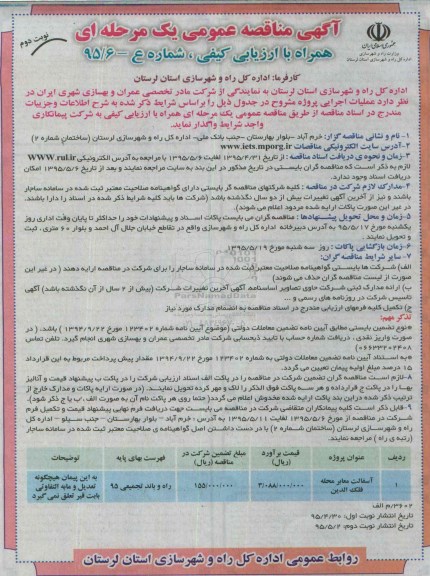 آگهی مناقصه عمومی یک مرحله ای
همراه با ارزیابی کیفی، شماره ع –۹۵/۶
نوبت دوم
کارفرما: اداره کل راه و شهرسازی استان لرستان
اداره کل راه و شهرسازی استان لرستان به نمایندگی از شرکت مادر تخصصی عمران و بهسازی شهری ایران در
نظر دارد عملیات اجرایی پروژه مشروح در جدول ذیل را براساس شرایط ذکر شده به شرح اطلاعات وجزییات
مندرج در اسناد مناقصه از طریق مناقصه عمومی یک مرحله ای همراه با ارزیابی کیفی به شرکت پیمانکاری
واجد شرایط واگذار نماید.
۱– نام و نشانی مناقصه گزار: خرم آباد –بلوار بهارستان –جنب بانک ملی– اداره کل راه و شهرسازی لرستان (ساختمان شماره ۲)
۲–آدرس سایت الکترونیکی مناقصات www.iets.mporg.ir
۳–زمان و نحوه ی دریافت اسناد مناقصه: از تاریخ ۱۳۹۵/۴/۳۱ لغایت ۱۳۹۵/۵/۶ با مراجعه به آدرس الکترونیکی www.rul.ir
لازم به ذکر است که مناقصه گران می بایستی در تاریخ مذکور در این بند به سایت مراجعه نمایند و بعد از تاریخ ۱۳۹۵/۵/۶ امکان
دریافت اسناد وجود ندارد.
۴–مدارک لازم شرکت در مناقصه: کلیه شرکتهای مناقصه گر بایستی دارای گواهینامه صلاحیت معتبر ثبت شده در سامانه ساجار
باشند و نیز از آخرین آگهی تغییرات بیش از دو سال نگذشته باشد (شرکت ها باید کلیه شرایط ذکر شده در اسناد را دارا باشند.
در غیر این صورت پاکات ارایه شده مردود اعلام می شوند).
۵–زمان و محل تحویل پیشنهادها: مناقصه گران می بایست پاکات اسناد و پیشنهادات خود را حداکثر تا پایان وقت اداری روز
یکشنبه مورخ ۹۵/۵/۱۷ به آدرس دبیرخانه اداره کل راه و شهرسازی واقع در تقاطع خیابان جلال آل احمد و بلوار ۶۰ متری، ثبت
و تحویل نمایند.
۶–زمان بازگشایی پاکات: روز سه شنبه مورخ ۱۳۹۵/۵/۱۹
۷– سایر شرایط مناقصه گران:
الف) شرکت ها بایستی گواهینامه صلاحیت معتبر ثبت شده در سامانه ساجار را برای شرکت در مناقصه ارایه دهند (در غیر این
صورت از لیست مناقصه گران حذف می شوند)
ب) ارائه مدارک ثبتی شرکت حاوی تصاویر اساسنامه آگهی آخرین تغییرات شرکت (بیش از ۲ سال از آن نگذشته باشد) آگهی
تاسیس شرکت در روزنامه های رسمی و ...
ج) تکمیل کلیه فرمهای ارزیابی مندرج در اسناد مناقصه به انضمام مدارک مورد نیاز
تذکر مهم:
*نوع تضمین بایستی مطابق آیین نامه تضمین معاملات دولتی (موضوع آیین نامه شماره ۱۲۳۴۰۲ مورخ ۱۳۹۴/۹/۲۲) باشد، (در
صورت واریز نقدی، دریافت شماره حساب با تایید ذیحسابی شرکت مادر تخصصی عمران و بهسازی شهری انجام گیرد. تلفن تماس
*به استناد آیین نامه تضمین معاملات دولتی به شماره ۱۲۳۴۰۲ مورخ ۱۳۹۴/۹/۲۲ مقدار پیش پرداخت مربوط به این قرارداد
۱۵ درصد مبلغ اولیه پیمان تعیین می گردد.
۸–لازم است مناقصه گران تضمین شرکت در مناقصه را در پاکت الف اسناد ارزیابی شرکت را در پاکت ب پیشنهاد قیمت و آنالیز
بها را در پاکت ج قرارداده و هر سه پاکت فوق الذکر را لاک و مهر کرده تحویل نمایند. (در صورت ارایه پاکات و مدارک خارج از
ترتیب ذکر شده دراین بند پاکات ارایه شده مخدوش اعلام می گردد) حتما روی هر پاکت نام آن به صورت الف .ب یا ج ذکر شود).
۹–قابل ذکر است کلیه پیمانکاران متقاضی شرکت در مناقصه می بایست جهت دریافت فرم نهایی پیشنهاد قیمت و تکمیل فرم
شرکت در مناقصه از مورخ ۱۳۹۵/۵/۶ لغایت ۱۳۹۵/۵/۱۱ به آدرس: خرم آباد – بلوار بهارستان – جنب سیلو – اداره کل
راه و شهرسازی لرستان (ساختمان شماره ۲) با در دست داشتن اصل گواهینامه ی صلاحیت معتبر ثبت شده در سامانه ساجار
(رتبه ی راه) مراجعه نمایند.
ردیف عنوان پروژه قیمت برآورد (ریال) مبلغ تضمین شرکت در مناقصه (ریال) فهرست بهای پایه توضیحات
۱ آسفالت معابر محله فلک الدین ۳/۰۸۸/۰۰۰/۰۰۰ ۱۵۵/۰۰۰/۰۰۰ راه و باند تجمیعی ۹۵ به این پیمان هیچگونه تعدیل و مابه التفاوتی بابت قیر تعلق نمی گیرد
۳۶۰۲/م الف
تاریخ انتشار نوبت اول: ۹۵/۴/۳۰
تاریخ انتشار نوبت دوم: ۹۵/۵/۲
روابط عمومی اداره کل راه و شهرسازی استان لرستان